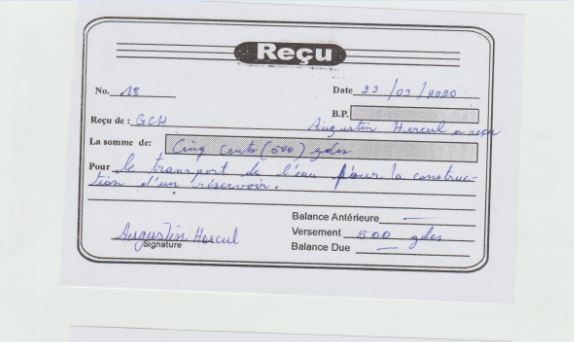 Reçu
No. 18 Date 23 / 03 / 2020
B.P.
Reçu de : GCH Augustin Hercul a reçu
La somme de: Cinq cents (500) gdes
Pour le transport de l'eau pour la construc-
tion d'un réservoir.
Balance Antérieure —
Augustin Hercul Versement 500 gdes
Signature
Balance Due —